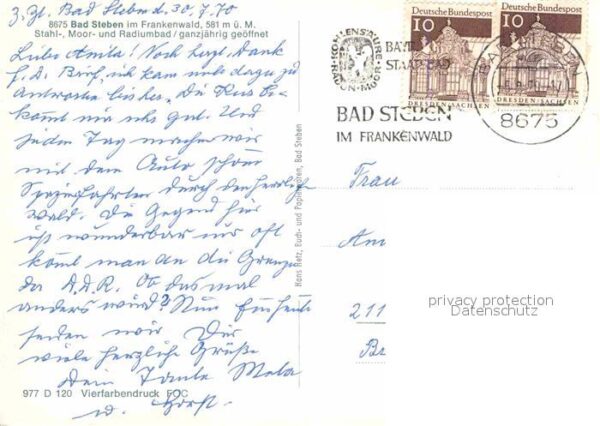 z. Zt. Bad Steben d. 30.7.70
8675 Bad Steben im Frankenwald, 581 m ü. M.
Stahl-, Moor- und Radiumbad / ganzjährig geöffnet
Liebe Anita! Noch herzl. Dank
f. d. Brief, ich kam nicht dazu zu
antworten bisher. Die Kur be-
kommt mir sehr gut. Und
jeden Tag machen wir
mit dem Auto schöne
Spazierfahrten durch den herrlichen
Wald. Die Gegend hier
ist wunderbar nur oft
kommt man an die Grenze
der D.D.R. Ob das mal
anders wird? Nun für heute
senden wir Dir
viele herzliche Grüße
Dein Tante Meta
u. Horst
977 D 120 Vierfarbendruck FOC
Hans Hetz, Buch- und Papierwaren, Bad Steben
Deutsche Bundespost
10
DRESDEN-SACHSEN
Deutsche Bundespost
10
DRESDEN-SACHSEN
BAYER.
STAATSBAD
BAD STEBEN
IM FRANKENWALD
BAD STEBEN
8675
Frau
An
211
Br
privacy protection
Datenschutz